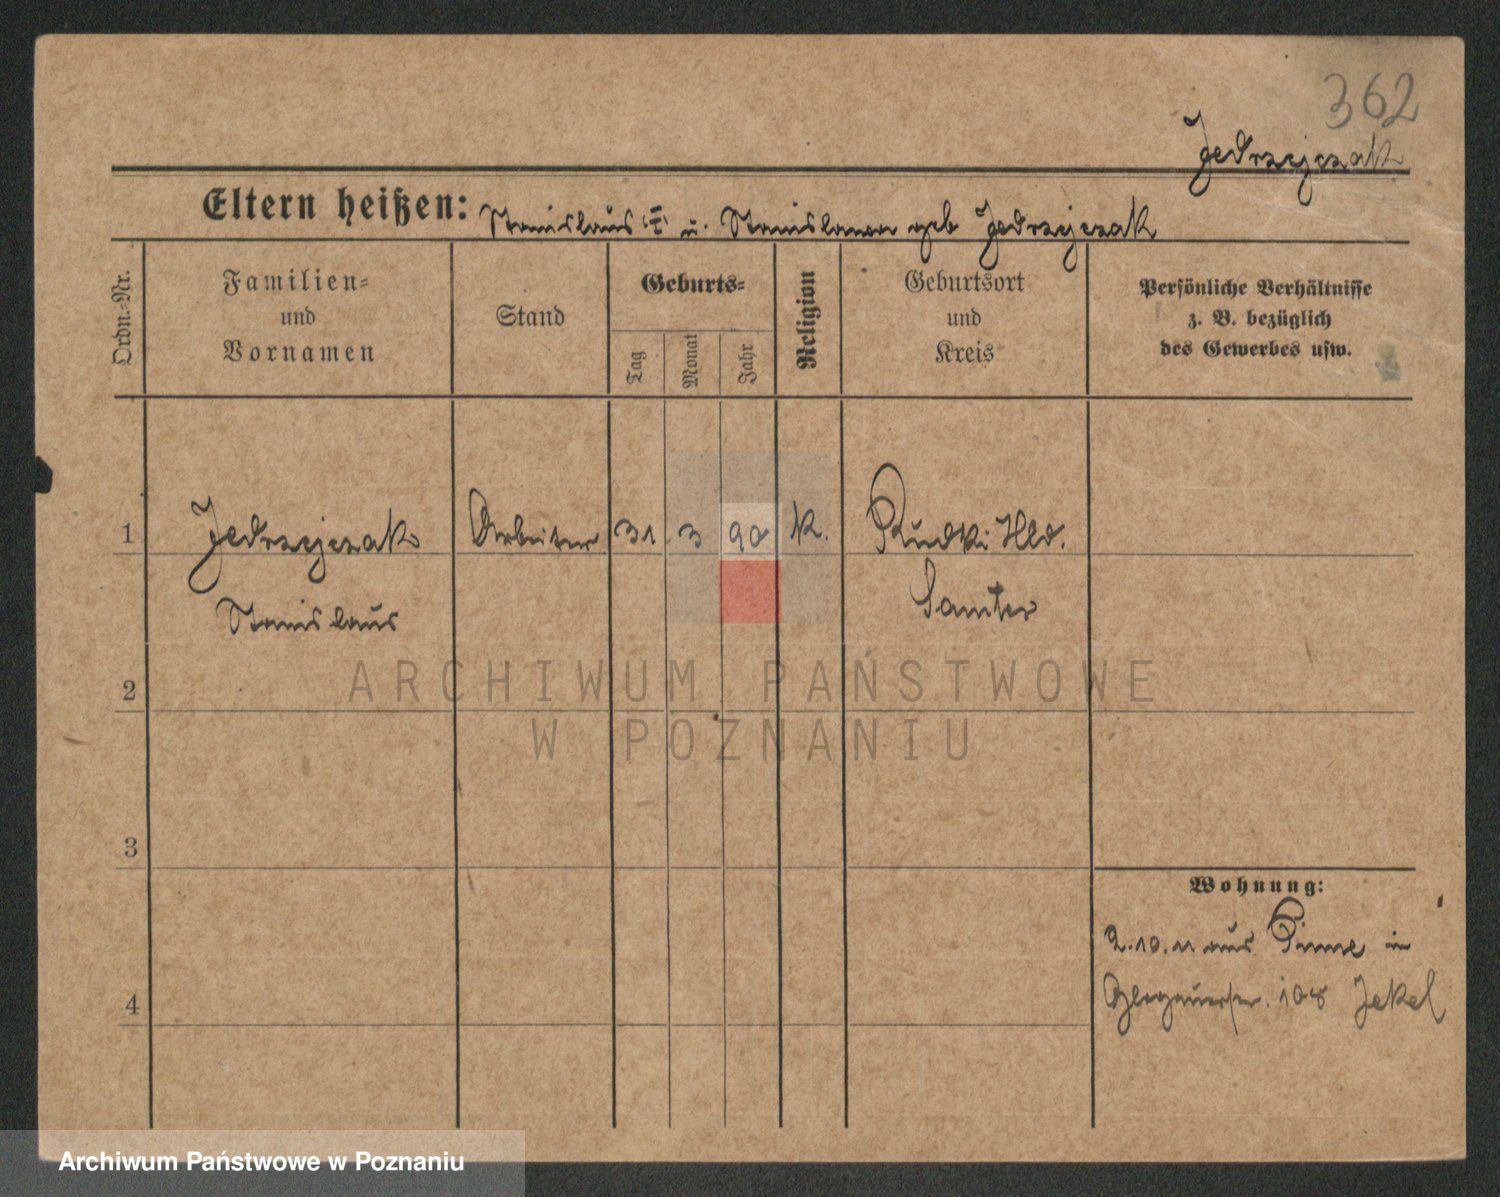 362
Jedrzejczak
Eltern heißen: Stanislaus u. Stanislawa geb Jedrzejczak
Ordn.-Nr.
Familien-
und
Vornamen
Stand
Geburts-
Tag
Monat
Jahr
Religion
Geburtsort
und
Kreis
Persönliche Verhältnisse
z. B. bezüglich
des Gewerbes usw.
1 Jedrzejczak Arbeiter 31 3 90 K. Rudki Hld.
Stanislaus Samter
2
ARCHIWUM PAŃSTWOWE
W POZNANIU
3
Wohnung:
2.10.11 aus Pinne in
4 Glogauerstr. 108 Jekel
Archiwum Państwowe w Poznaniu